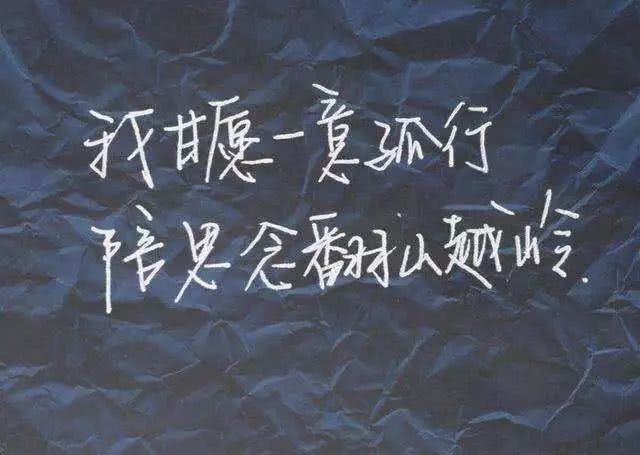 我甘愿一意孤行
陪思念翻山越岭.